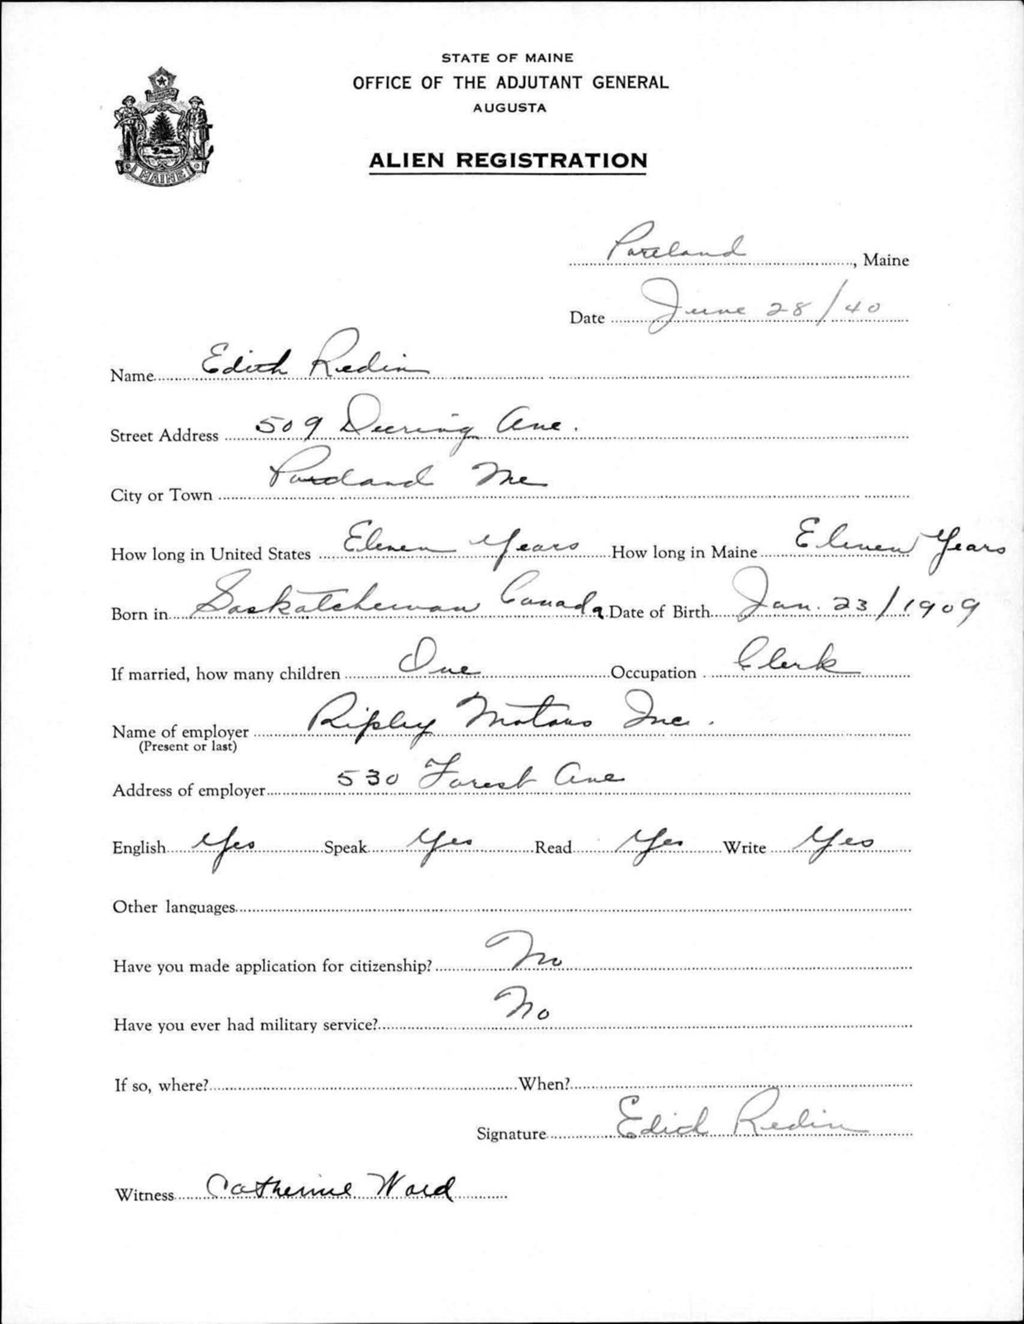 STATE OF MAINE
OFFICE OF THE ADJUTANT GENERAL
AUGUSTA
ALIEN REGISTRATION
MAINE
Portland, Maine
Date June 28/40
Name Edith Redin
Street Address 509 Deering Ave.
City or Town Portland Me
How long in United States Eleven Years How long in Maine Eleven Years
Born in Saskatchewan Canada Date of Birth Jan. 23/1909
If married, how many children One Occupation Clerk
Name of employer Ripley Motors Inc.
(Present or last)
Address of employer 530 Forest Ave
English Yes Speak Yes Read Yes Write Yes
Other languages
Have you made application for citizenship? No
Have you ever had military service? No
If so, where? When?
Signature Edith Redin
Witness Catherine Ward